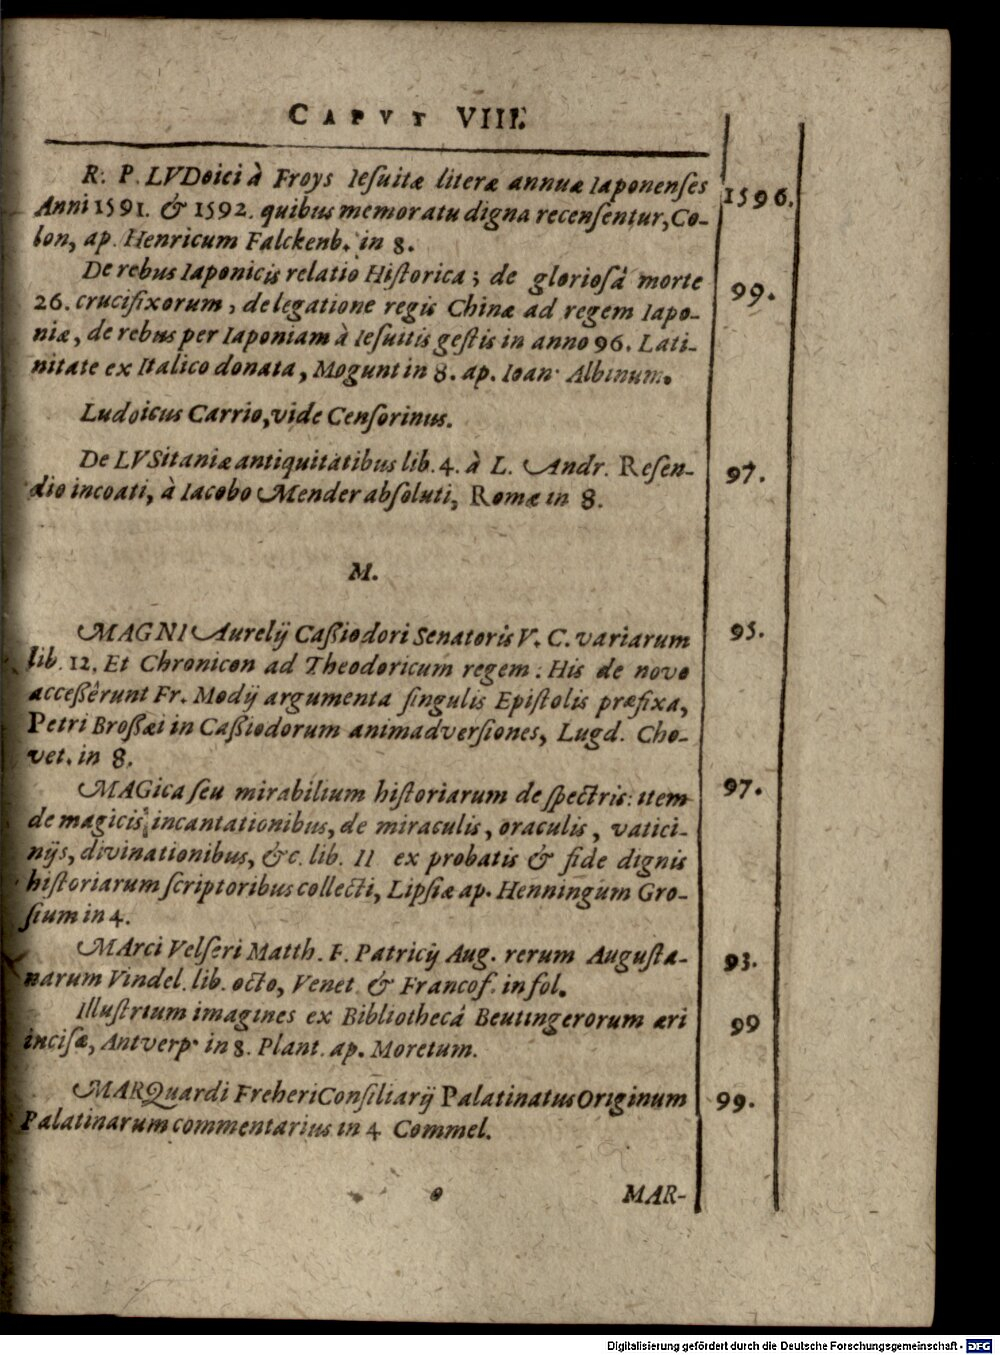 CAPVT VIII.
R. P. LVDoici à Froys Iesuitæ literæ annuæ Iaponenses 1596.
Anni 1591. & 1592. quibus memoratu digna recensentur, Co-
lon, ap. Henricum Falckenb. in 8.
De rebus Iaponicis relatio Historica; de gloriosâ morte 99.
26. crucifixorum, de legatione regis Chinæ ad regem Iapo-
niæ, de rebus per Iaponiam à Iesuitis gestis in anno 96. Lati-
nitate ex Italico donata, Mogunt in 8. ap. Ioan. Albinum.
Ludoicus Carrio, vide Censorinus.
De LVSitaniæ antiquitatibus lib. 4. à L. Andr. Resen- 97.
dio incoati, à Iacobo Mender absoluti, Romæ in 8.
M.
MAGNI Aurelij Caßiodori Senatoris V. C. variarum 95.
lib. 12. Et Chronicon ad Theodoricum regem. His de novo
acceßerunt Fr. Modij argumenta singulis Epistolis præfixa,
Petri Broßæi in Caßiodorum animadversiones, Lugd. Cho-
vet. in 8.
MAGica seu mirabilium historiarum de spectris: item 97.
de magicis incantationibus, de miraculis, oraculis, vatici-
nijs, divinationibus, &c. lib. II ex probatis & fide dignis
historiarum scriptoribus collecti, Lipsiæ ap. Henningum Gro-
sium in 4.
MArci Velseri Matth. F. Patricij Aug. rerum Augusta- 93.
narum Vindel. lib. octo, Venet. & Francof. in fol.
Illustrium imagines ex Bibliothecâ Beutingerorum æri 99
incisæ, Antverp. in 8. Plant. ap. Moretum.
MARQuardi Freheri Consiliarij Palatinatus Originum 99.
Palatinarum commentarius in 4 Commel.
MAR-
Digitalisierung gefördert durch die Deutsche Forschungsgemeinschaft - DFG